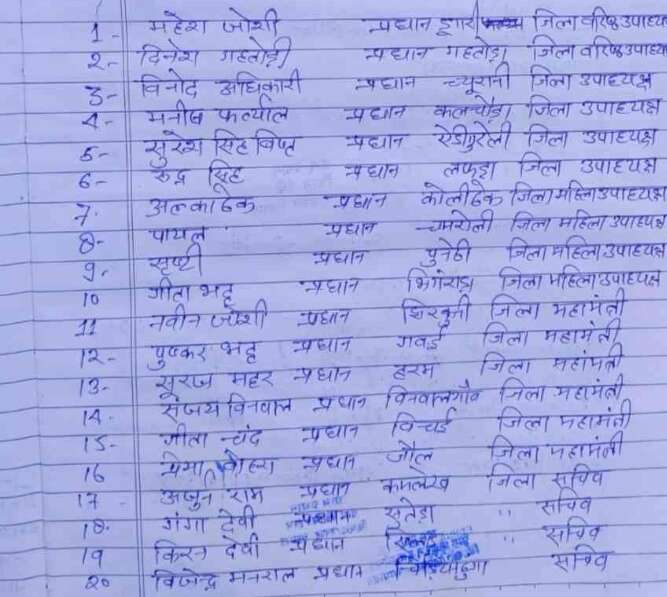 1- महेश जोशी प्रधान जिला वरिष्ठ उपाध्य
2- दिनेश गहतोड़ी प्रधान गहतोड़ा जिला वरिष्ठ उपाध्य
3- विनोद अधिकारी प्रधान च्यूरानी जिला उपाध्यक्ष
4- मनीष फर्त्याल प्रधान कलचौड़ा जिला उपाध्यक्ष
5- सुरेश सिंह विष्ट प्रधान जिला उपाध्यक्ष
6- रुद्र सिंह प्रधान लफड़ा जिला उपाध्यक्ष
7. अल्का ढेक प्रधान कोलीढेक जिला महिला उपाध्यक्ष
8- पायल प्रधान चमरोली जिला महिला उपाध्यक्ष
9. सृष्टी प्रधान पुनेठी जिला महिला उपाध्यक्ष
10 गीता भट्ट प्रधान भिंगराड़ा जिला महिला उपाध्यक्ष
11 नवीन जोशी प्रधान जिला महामंती
12- पुष्कर भट्ट प्रधान गवई जिला महामंती
13- सूरज महर प्रधान जिला महामंती
14. संजय विनवाल प्रधान विनवालगाँव जिला महामंती
15- गीता चंद प्रधान विचई जिला महामंती
16 प्रेमा वोहरा प्रधान जौल जिला महामंती
17 अर्जुन राम प्रधान कमलेख जिला सचिव
18. गंगा देवी प्रधान सुतेड़ा ,, सचिव
19 किरन देवी प्रधान ,, सचिव
20 विजेन्द्र मनराल प्रधान सचिव